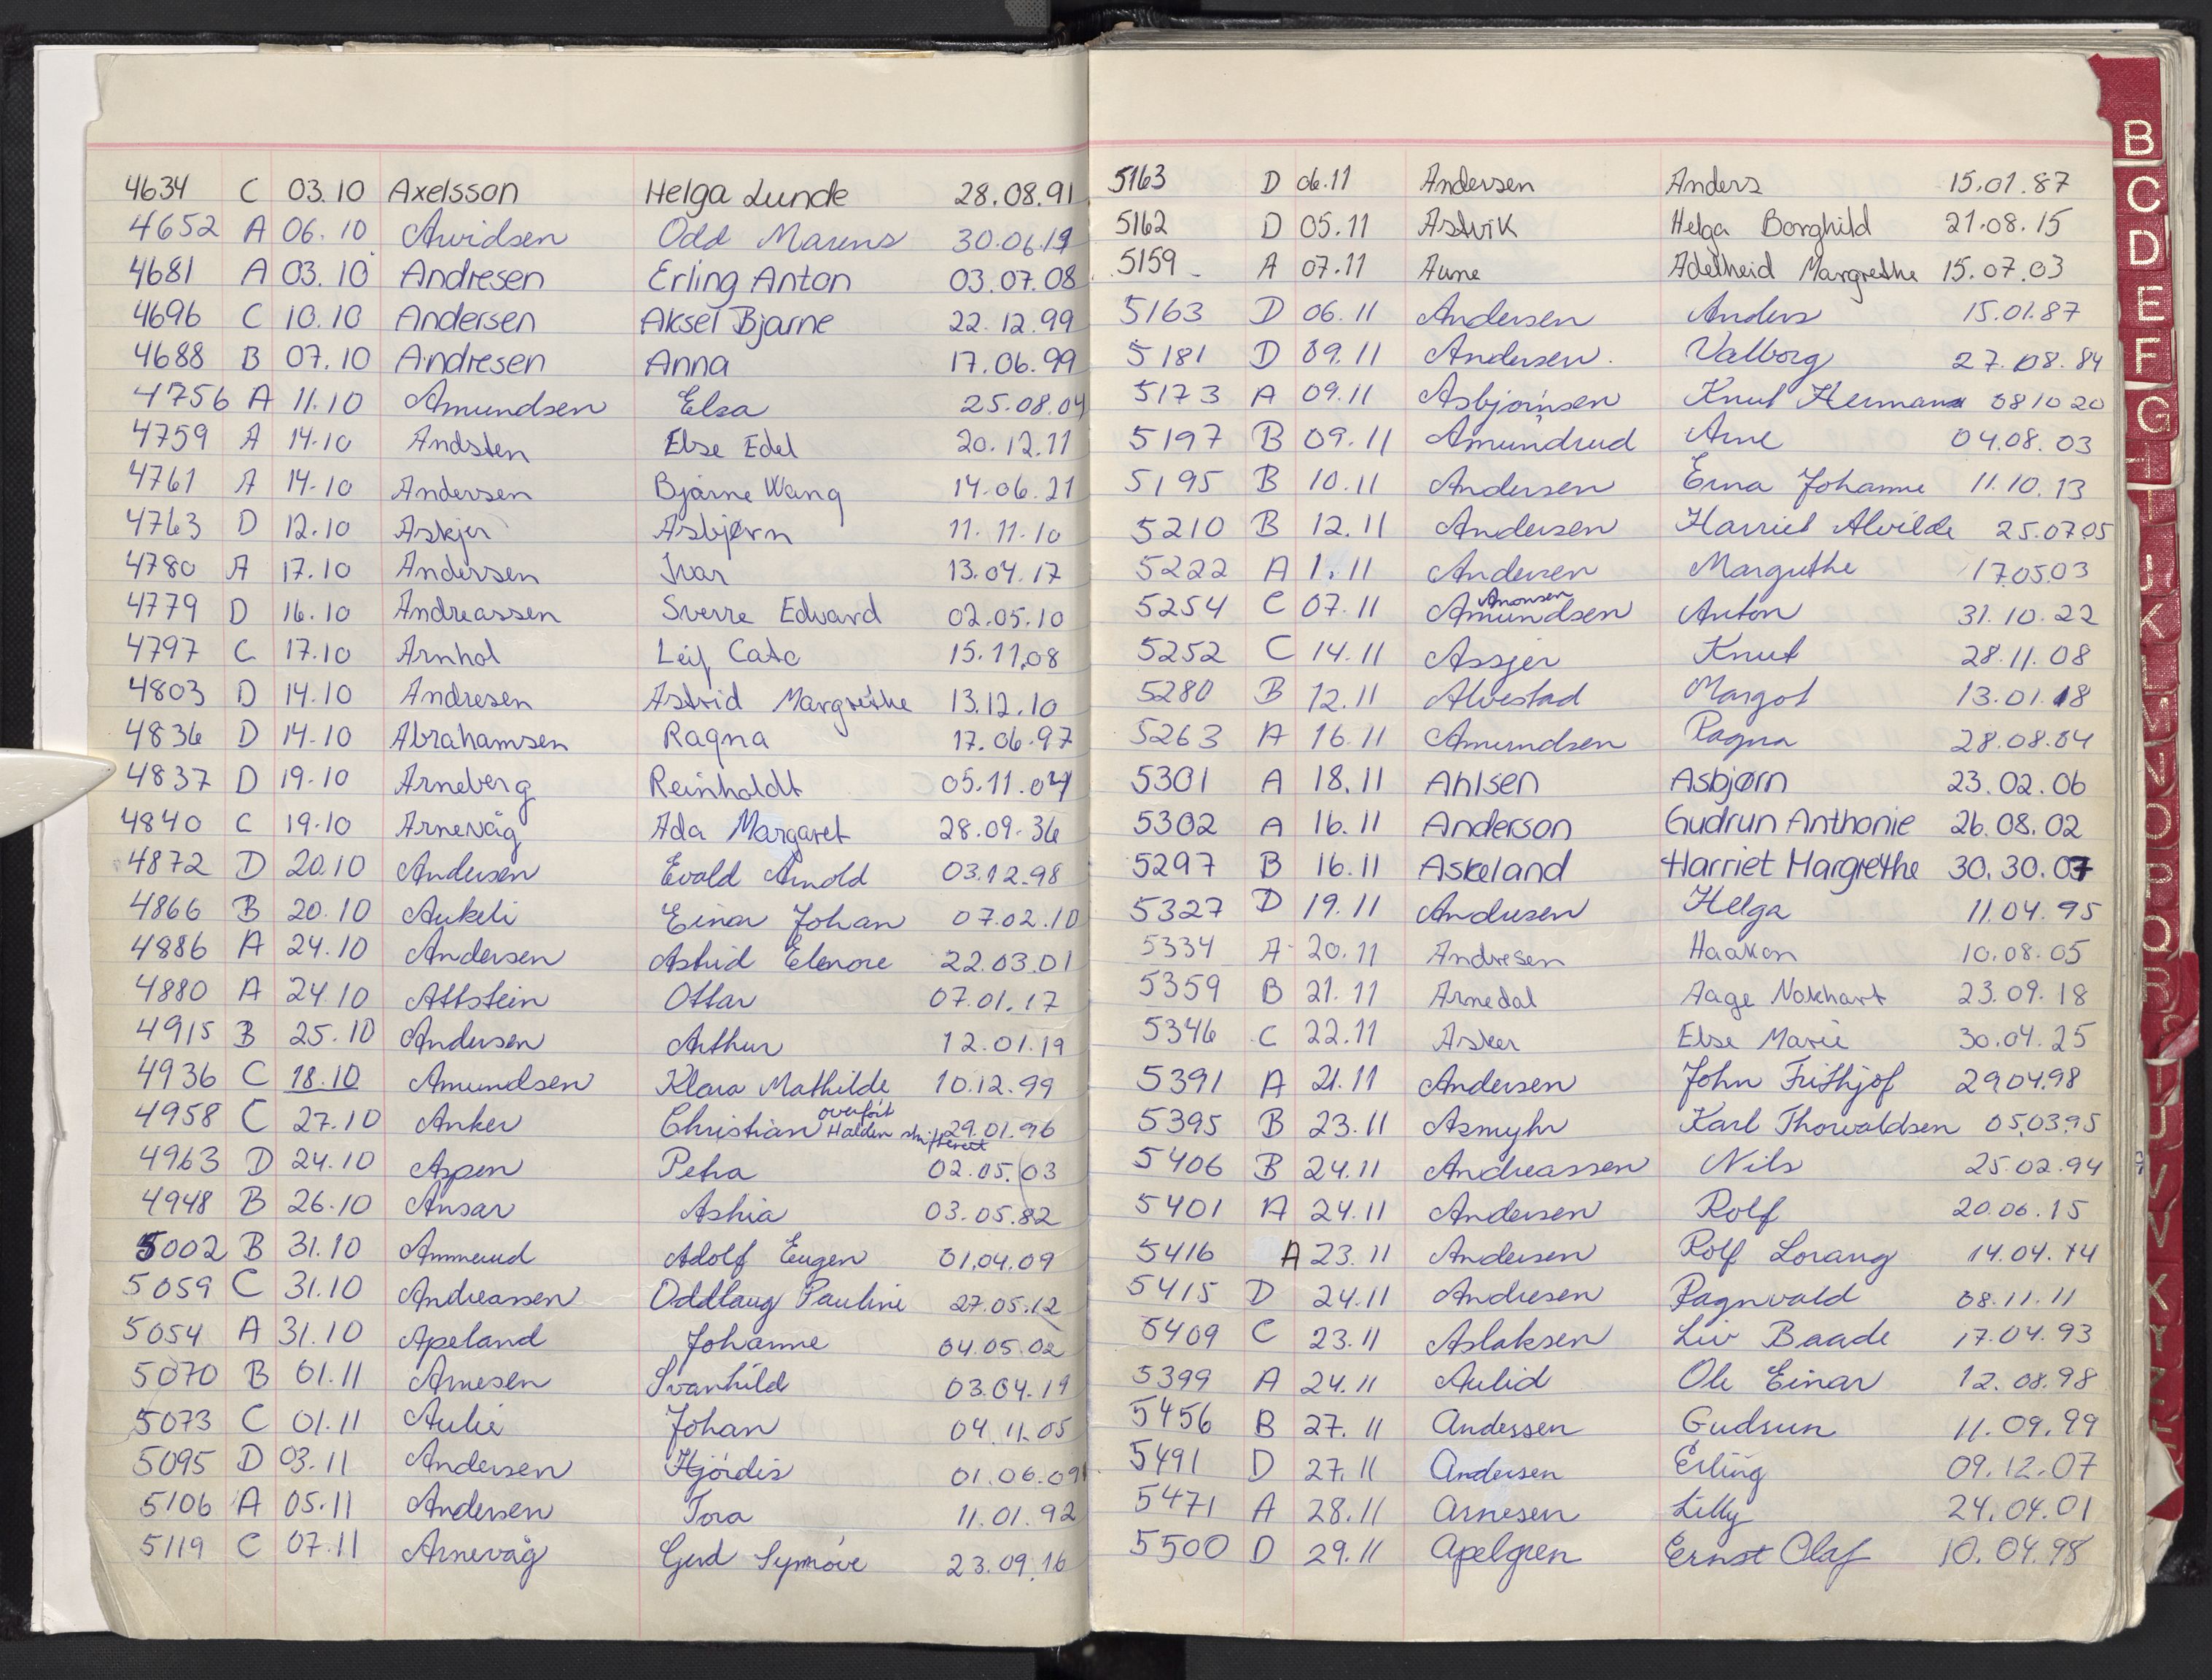 4634 C 03.10 Axelsson Helga Lunde 28.08.91
4652 A 06.10 Arvidsen Odd Marens 30.06.19
4681 A 03.10 Andresen Erling Anton 03.07.08
4696 C 10.10 Andersen Aksel Bjarne 22.12.99
4688 B 07.10 Andresen Anna 17.06.99
4756 A 11.10 Amundsen Elsa 25.08.04
4759 A 14.10 Andsten Else Edel 20.12.11
4761 A 14.10 Andersen Bjarne Wang 14.06.21
4763 D 12.10 Askjer Asbjørn 11.11.10
4780 A 17.10 Andersen Ivar 13.04.17
4779 D 16.10 Andreassen Sverre Edvard 02.05.10
4797 C 17.10 Arnhol Leif Cato 15.11.08
4803 D 14.10 Andresen Astrid Margrethe 13.12.10
4836 D 14.10 Abrahamsen Ragna 17.06.97
4837 D 19.10 Arneberg Reinholdt 05.11.04
4840 C 19.10 Arnevåg Ada Margaret 28.09.36
4872 D 20.10 Andersen Evald Arnold 03.12.98
4866 B 20.10 Aukeli Einar Johan 07.02.10
4886 A 24.10 Andersen Astrid Elenore 22.03.01
4880 A 24.10 Attstein Ottar 07.01.17
4915 B 25.10 Andersen Arthur 12.01.19
4936 C 18.10 Amundsen Klara Mathilde 10.12.99
4958 C 27.10 Anker Christian overført Halden 29.01.96
4963 D 24.10 Aspen Petra 02.05.03
4948 B 26.10 Ansar Ashia 03.05.82
5002 B 31.10 Ammerud Adolf Eugen 01.04.09
5059 C 31.10 Andreassen Oddlaug Pauline 27.05.12
5054 A 31.10 Apeland Johanne 04.05.02
5070 B 01.11 Arnesen Svanhild 03.04.19
5073 C 01.11 Aulie Johan 04.11.05
5095 D 03.11 Andersen Hjørdis 01.06.09
5106 A 05.11 Andersen Tora 11.01.92
5119 C 07.11 Arnevåg Gerd Synnøve 23.09.16
5163 D 06.11 Andersen Anders 15.01.87
5162 D 05.11 Astvik Helga Borghild 21.08.15
5159 A 07.11 Aune Adelheid Margrethe 15.07.03
5163 D 06.11 Andersen Anders 15.01.87
5181 D 09.11 Andersen. Valborg 27.08.84
5173 A 09.11 Asbjørnsen Knut Hermann 08 10 20
5197 B 09.11 Amundrud Arne 04.08.03
5195 B 10.11 Andersen Erna Johanne 11.10.13
5210 B 12.11 Andersen Harriet Alvilde 25.07 05
5222 A 1.11 Andersen Margrethe 17.05.03
5254 C 07.11 Amundsen Amonsen Anton 31.10.22
5252 C 14.11 Assjer Knut 28.11.08
5280 B 12.11 Alvestad Margot 13.01.18
5263 A 16.11 Amundsen Ragna 28.08.04
5301 A 18.11 Ahlsen Asbjørn 23.02.06
5302 A 16.11 Anderson Gudrun Anthonie 26.08.02
5297 B 16.11 Askeland Harriet Margrethe 30.30.07
5327 D 19.11 Andresen Helga 11.04.95
5334 A 20.11 Andresen Haakon 10.08.05
5359 B 21.11 Arnedal Aage Nokhart 23.09.18
5346 C 22.11 Asker Else Marie 30.04.25
5391 A 21.11 Andersen John Frithjof 29.04.98
5395 B 23.11 Asmyhr Karl Thorvaldsen 05.03.95
5406 B 24.11 Andreassen Nils 25.02.94
5401 A 24.11 Andersen Rolf 20.06.15
5416 A 23.11 Andersen Rolf Lorang 14.04.14
5415 D 24.11 Andresen Ragnvald 08.11.11
5409 C 23.11 Aslaksen Liv Baade 17.04.93
5399 A 24.11 Aulid Ole Einar 12.08.98
5456 B 27.11 Anderssen Gudrun 11.09.99
5491 D 27.11 Andersen Erling 09.12.07
5471 A 28.11 Arnesen Lilly 24.04.01
5500 D 29.11 Apelgren Ernst Olaf 10.04.98
B
C
D
E
F
G